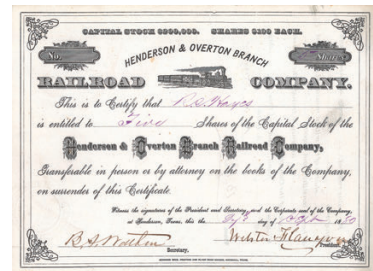 CAPITAL STOCK $200,000. SHARES $100 EACH.
No. Shares
HENDERSON & OVERTON BRANCH
RAILROAD COMPANY.
This is to Certify that
is entitled to Five Shares of the Capital Stock of the
Henderson & Overton Branch Railroad Company,
Transferable in person or by attorney on the books of the Company,
on surrender of this Certificate.
Witness the signatures of the President and Secretary, and the Corporate seal of the Company,
at Henderson, Texas, this the day of 18
Secretary. President.